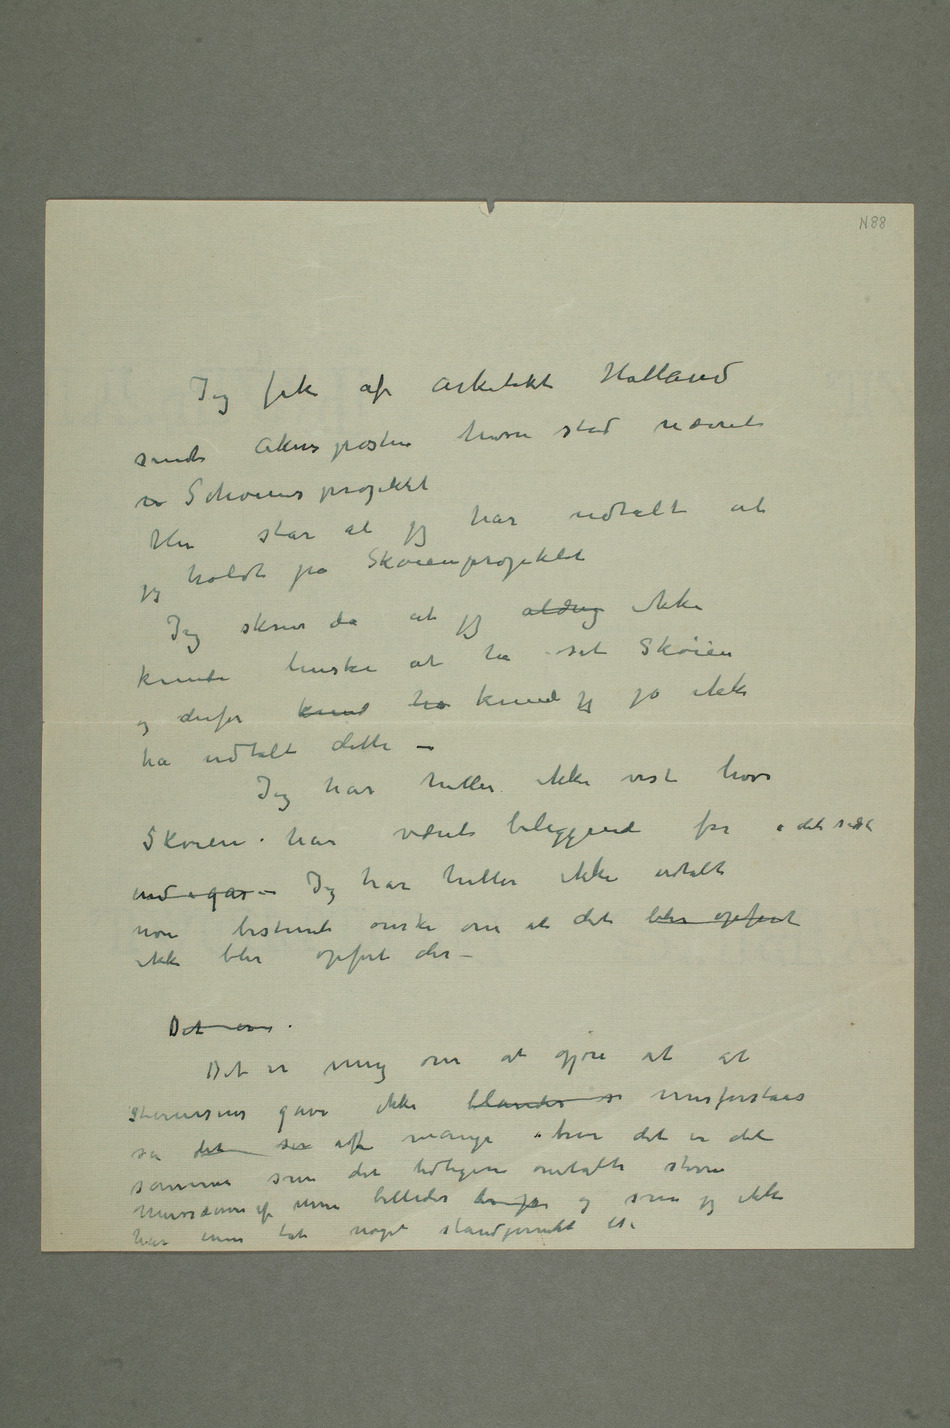 N 88
Jeg fik af arkitekt Holland
sendt Akersposten hvori stod nævnt
n Schøiens projektet
Her står at jeg har udtalt at
jeg holdt på Skøienprojektet
Jeg skrev da at jeg aldrig ikke
kunde huske at ha set Skøien
og derfor kund ha kunde jeg jo ikke
ha udtalt dette –
Jeg har heller ikke vist hvor
Skøien har været beliggende før i det sidste
end igår – Jeg har heller ikke udtalt
noe bestemt ønske om at det blir opført
ikke blir opført der –
Det er
Det er mig om at gjøre at at
Stenersens gave ikke blandes se misforståes
så det ser af mange tror det er det
samme som det tidligere omtalte større
Museum af mine billeder og som jeg ikke
har ennu tat noget standpunkt til